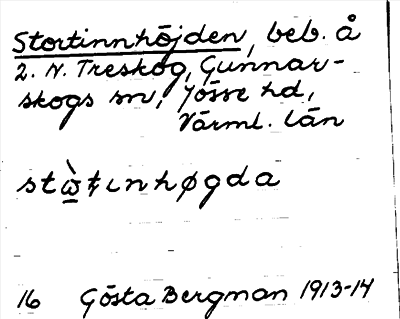 Stortinnhöjden, beb. å
2. N. Treskog, Gunnar-
skogs sn, Jösse hd,
Värml. län
stὼ̲ŧınhøgda
16 Gösta Bergman 1913-14